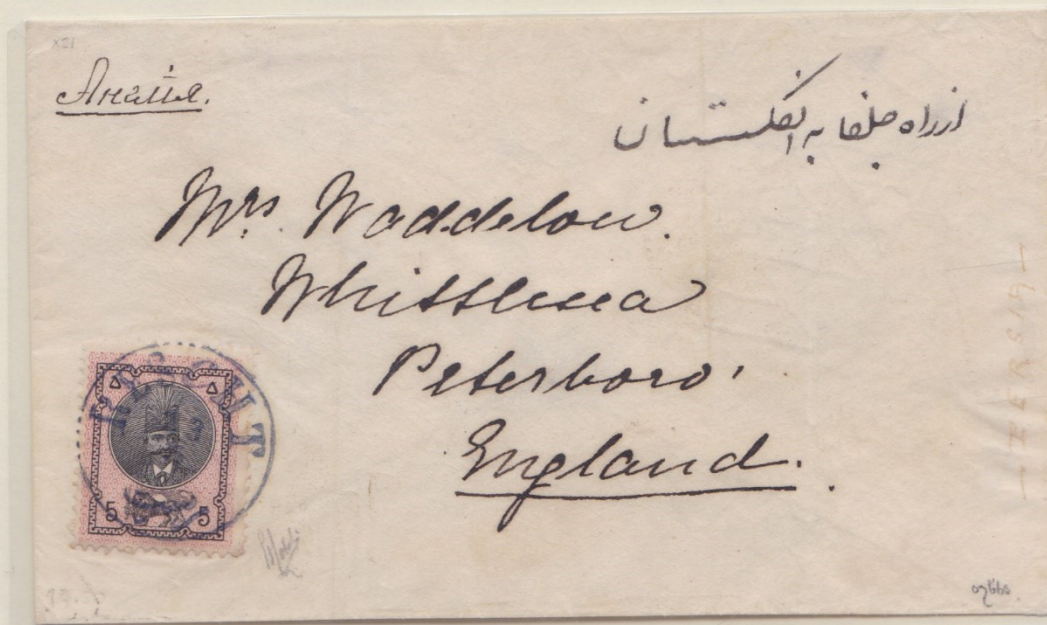 Англія.
از راه جلفا به انگلستان
Mrs. Waddelow.
Whittlesea
Peterboro.
England.
RESCHT
۵ ۵
5 5
PERSIA